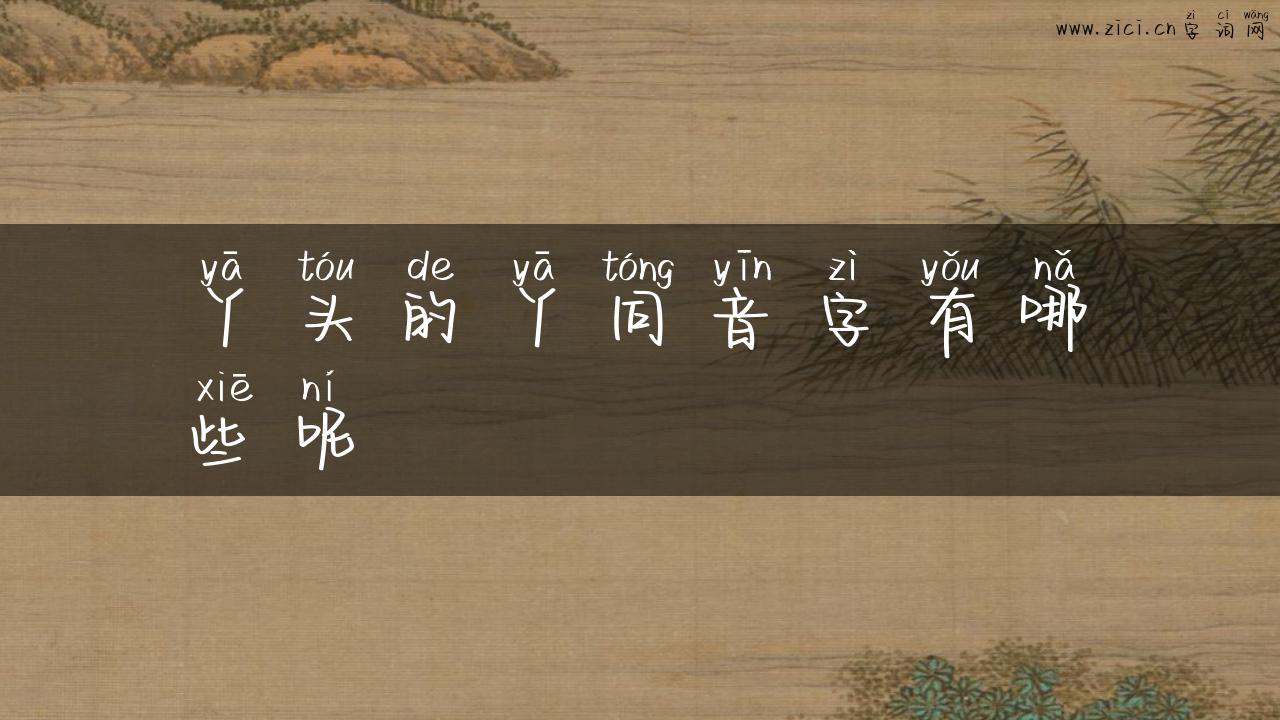 zì cí wǎng
www.zici.cn 字 词 网
yā tóu de yā tóng yīn zì yǒu nǎ
丫 头 的 丫 同 音 字 有 哪
xiē ní
些 呢